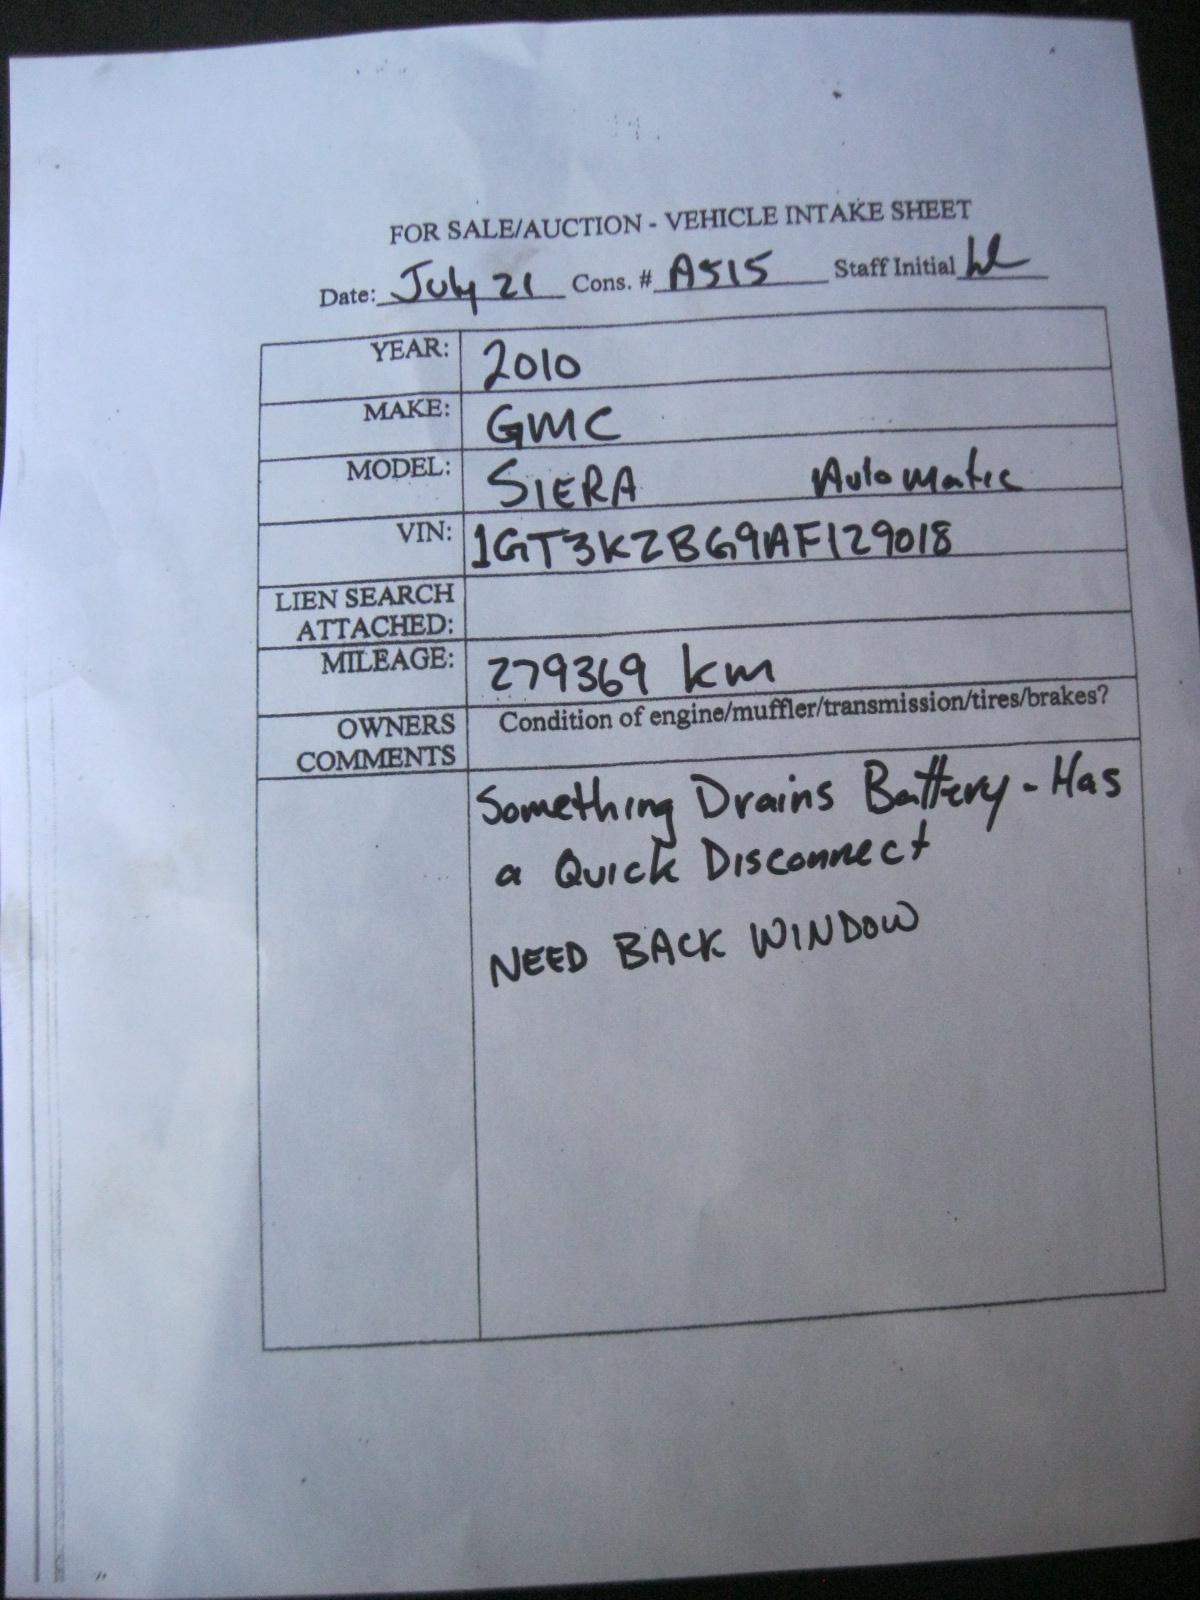 FOR SALE/AUCTION - VEHICLE INTAKE SHEET
Date: July 21 Cons. # A515 Staff Initial
YEAR: 2010
MAKE: GMC
MODEL: SIERA Automatic
VIN: 1GT3KZBG9AF129018
LIEN SEARCH
ATTACHED:
MILEAGE: 279369 km
OWNERS
COMMENTS
Condition of engine/muffler/transmission/tires/brakes?
Something Drains Battery - Has
a Quick Disconnect
NEED BACK WINDOW